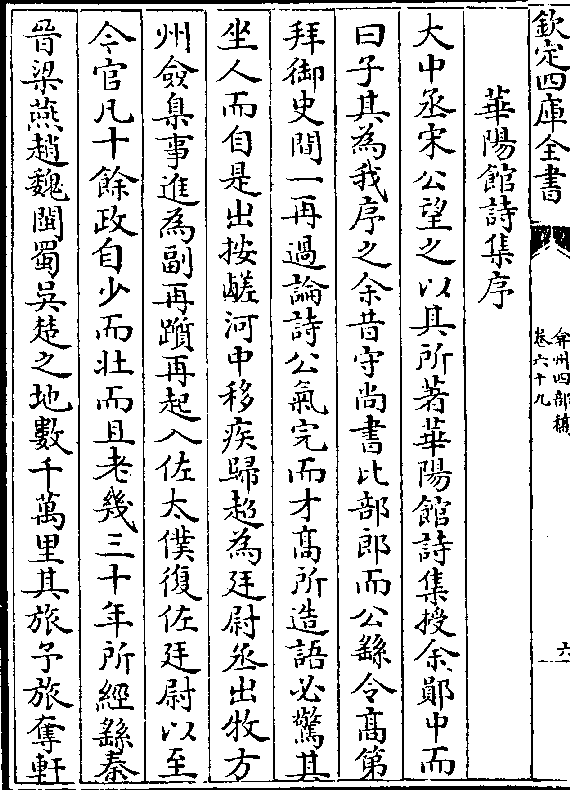 欽定四庫全書
弇州四部稿
卷六十九
六
華陽館詩集序
大中丞宋公望之以其所著華陽館詩集授余鄖中而
曰子其為我序之余昔守尚書比部郎而公繇令髙第
拜御史間一再過論詩公氣完而才髙所造語必驚其
坐人而自是出按鹺河中移疾歸起為廷尉丞出牧方
州僉臬事進為副再躓再起入佐太僕復佐廷尉以至
今官凡十餘政自少而壯而且老幾三十年所經繇秦
晉梁燕趙魏閩蜀吳楚之地數千萬里其旅予旅奪軒